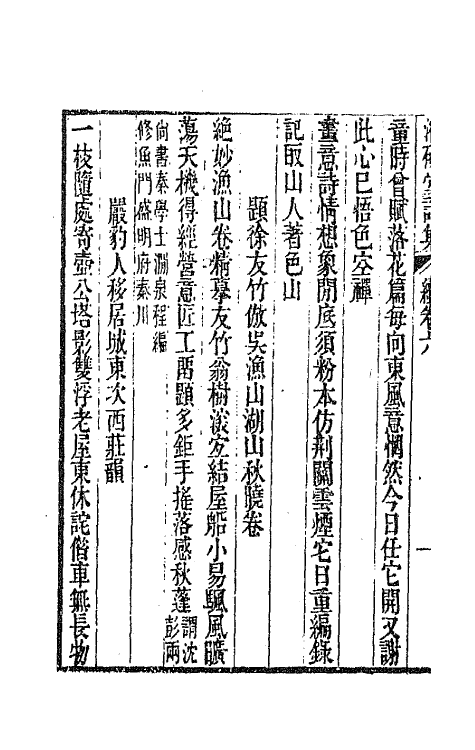 童時曾賦落花篇每向東風意惘然今日任它開又謝
此心已悟色空禪
畫意詩情想象閒底須粉本仿荆關雲煙它日重編錄
記取山人著色山
題徐友竹倣吳漁山湖山秋曉卷
絕妙漁山卷精摹友竹翁樹深宐結屋船小易颿風曠
蕩天機得經營意匠工畱題多鉅手搖落感秋蓬謂沈
彭兩
尚書秦學士澗泉程編
修魚門盛明府秦川
嚴豹人移居城東次西莊韻
一枝隨處寄壺公塔影雙浮老屋東休詫偕車無長物